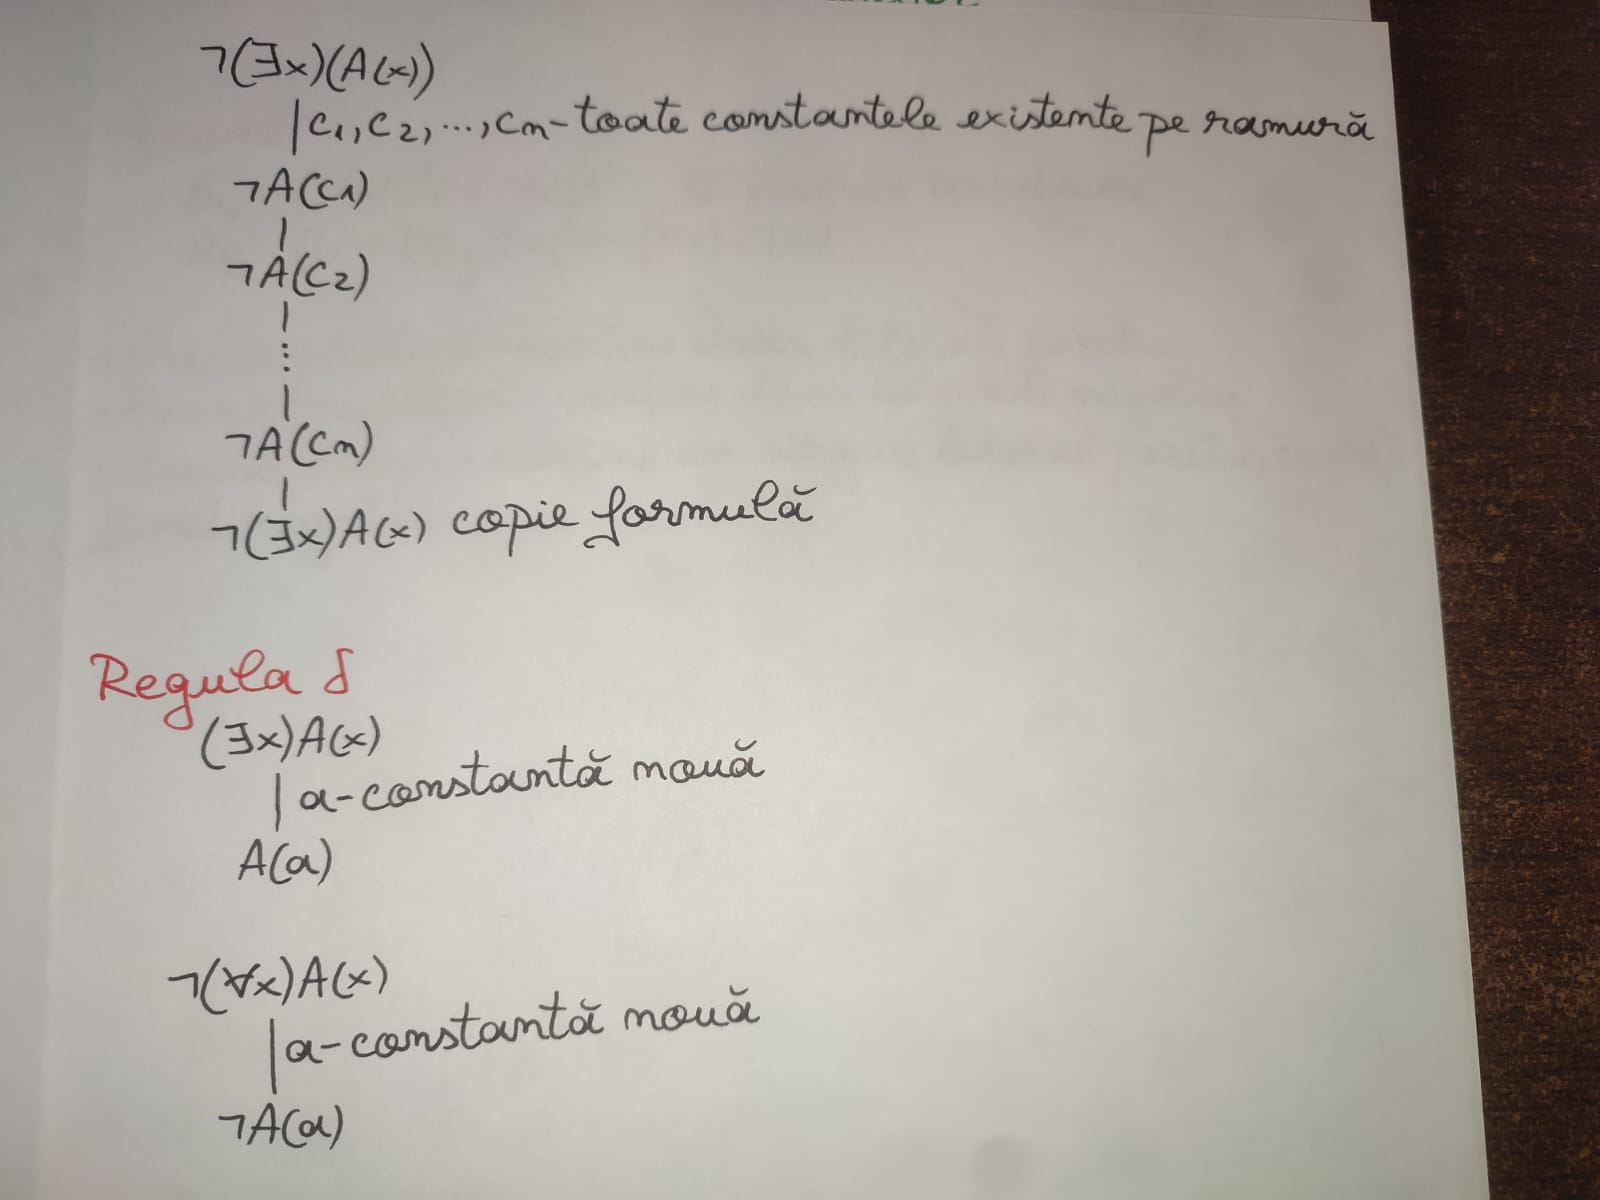 ¬(∃x)(A(x))
| c1, c2, ..., cn - toate constantele existente pe ramură
¬A(c1)
|
¬A(c2)
|
⋮
|
¬A(cn)
|
¬(∃x)A(x) copie formulă
Regula δ
(∃x)A(x)
| a - constantă nouă
A(a)
¬(∀x)A(x)
| a - constantă nouă
¬A(a)